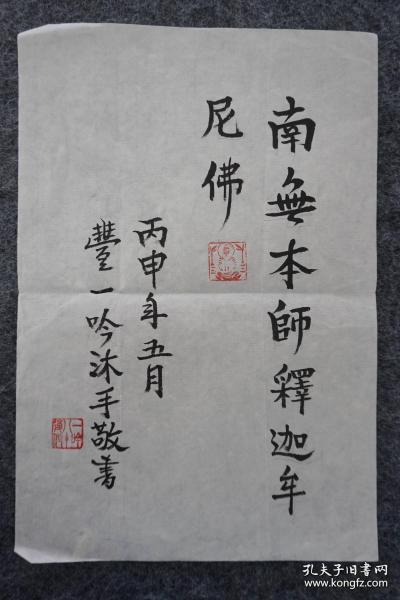 南無本師釋迦牟
尼佛
丙申年五月
豐一吟沐手敬書
孔夫子旧书网
www.kongfz.com